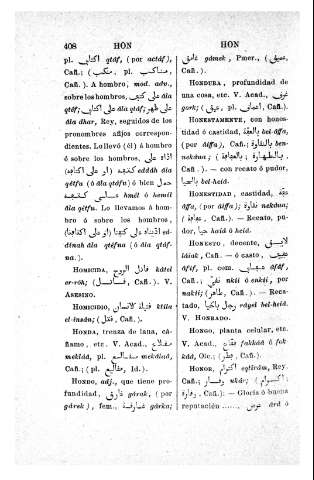 408 HON HON
pl. اكتاف qtâf, (por actâf),
Cañ.; (منكب, pl. مناكب,
Cañ.). A hombro, mod. adv.,
sobre los hombros, على كتف âla
qtâf; على اكتاف âla qtâf; على ظهر
âla dhar, Rey, seguidos de los
pronombres afijos correspon-
dientes. Lo llevó (él) á hombro
ó sobre los hombros,
eddáh âla
qétfu (ó âla qtâfu) ó bien حمل
على كتف hmél ó hemél
âla qétfu. Lo llevamos á hom-
bro ó sobre los hombros,
ed-
dinah âla qtéfna (ó âla qtâf-
na.)
HOMICIDA, قاتل الروح kâtel
er-róh; (قاتل, Cañ.). V.
ASESINO.
HOMICIDIO, قتيلة الانسان ktila
el-insân; (قتل, Cañ.).
HONDA, trenza de lana, cá-
ñamo, etc. V. Acad., مقلاع
meklâd, pl. مقالع mekâlaâ,
Cañ.; (pl. مقاليع, Id.).
HONDO, adj., que tiene pro-
fundidad, غارق gárak, (por
gárek), fem., غارقة gárka;
غامق gámek, Pmer., (عميق,
Cañ.).
HONDURA, profundidad de
una cosa, etc. V. Acad., غرق
gork; (عمق, pl. اعماق, Cañ.).
HONESTAMENTE, con hones-
tidad ó castidad, بالعفة bel-âffa,
(por êffa), Cañ.; بالنقاوة ben-
nekáua; (بالطهارة, بالعفافة,
Cañ.). — con recato ó pudor,
بالحيا bel-heiá.
HONESTIDAD, castidad, عفة
âffa, (por êiffa); نقاوة nekáua;
(عفافة, Cañ.). — Recato, pu-
dor, حيا haiá ó heiá.
HONESTO, decente, لايق
láiak, Cañ. — ó casto, عفيف
âfif, pl. عفاف âfâf,
Cañ., نقي nkií ó enkii, por
nakii; (طاهر, Cañ.). — Reca-
tado, رجل بالحيا rágel bel-heiá.
V. HONRADO.
HONGO, planta celular, etc.
V. Acad., فقاع fakkâd ó fok-
kâd, Oic.; (فطر, Cañ.).
HONOR, اكترام eqtirám, Rey.
Cañ.; وقار ukár; (اكرام,
وقارة, Cañ.). — Gloria ó buena
reputación ......, عرض ârd ó